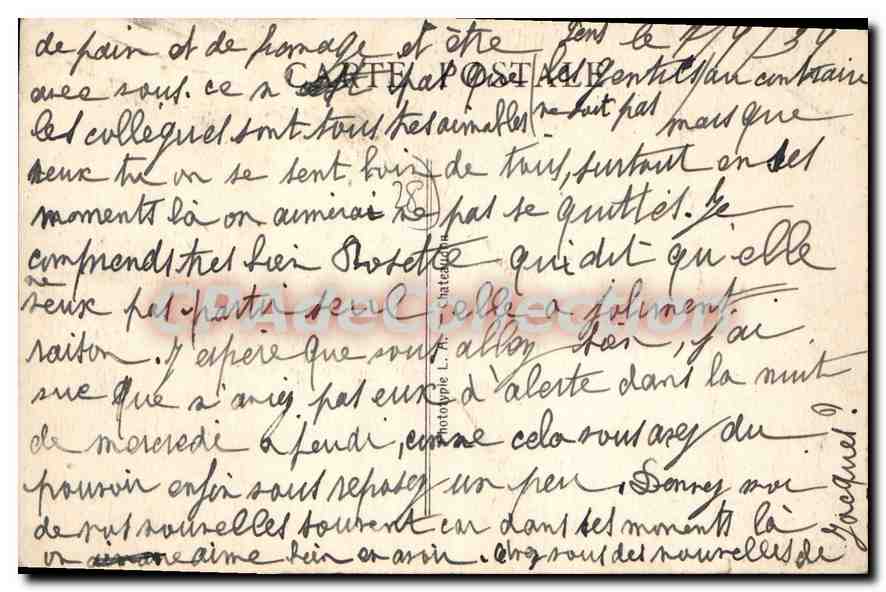 de pain et de fromage et être
Sens le 7/9/39
CARTE POSTALE
avec vous. ce n pas que les gens
au contraire
les collègues sont tous tres aimables
ne soit pas
mais que
veux tu on se sent loin de tous, surtout en ses
moments là on aimerai ne pas se quittes. Je
comprends tres bien Rosette qui dit qu'elle
ne
veux pas partir seul, elle a joliment
raison. J espère que vous allez bien, j'ai
sue que n'aviez pas eux d'alerte dans la nuit
de mercredi a jeudi, comme cela vous avez du
pouvoir enfin vous reposez un peu. Donnez moi
de vos nouvelles souvent car dans ses moments là
on aime bien en avoir. Avez vous des nouvelles de
Jacques?
Phototypie L. H. Chateaudun
CPAdeCollection